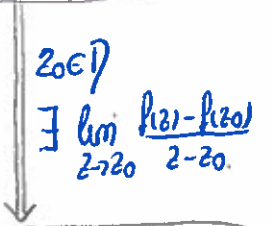 z₀∈D
∃ lim_{z→z₀} \frac{f(z)-f(z₀)}{z-z₀}